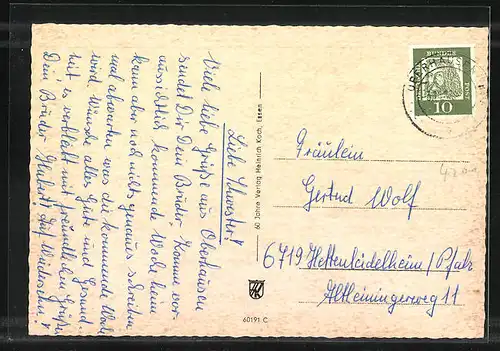 Liebe Schwester!
Viele liebe Grüße aus Oberhausen
sendet Dir Dein Bruder. Komme vor-
aussichtlich kommende Woche heim
kann aber noch nichts genaues schreiben
mal abwarten was die kommende Woche
wird. Wünsche alles Gute und Gesund-
heit es verbleibt mit freundlichen Grüßen
Dein Bruder Hubert! Auf Wiedersehn!
60 Jahre Verlag Heinrich Koch, Essen
60191 C
OBERHAUSEN
BUNDES
POST
10
Fräulein
Gertud Wolf
6719 Hettenleidelheim/Pfalz
Altleiningerweg 11